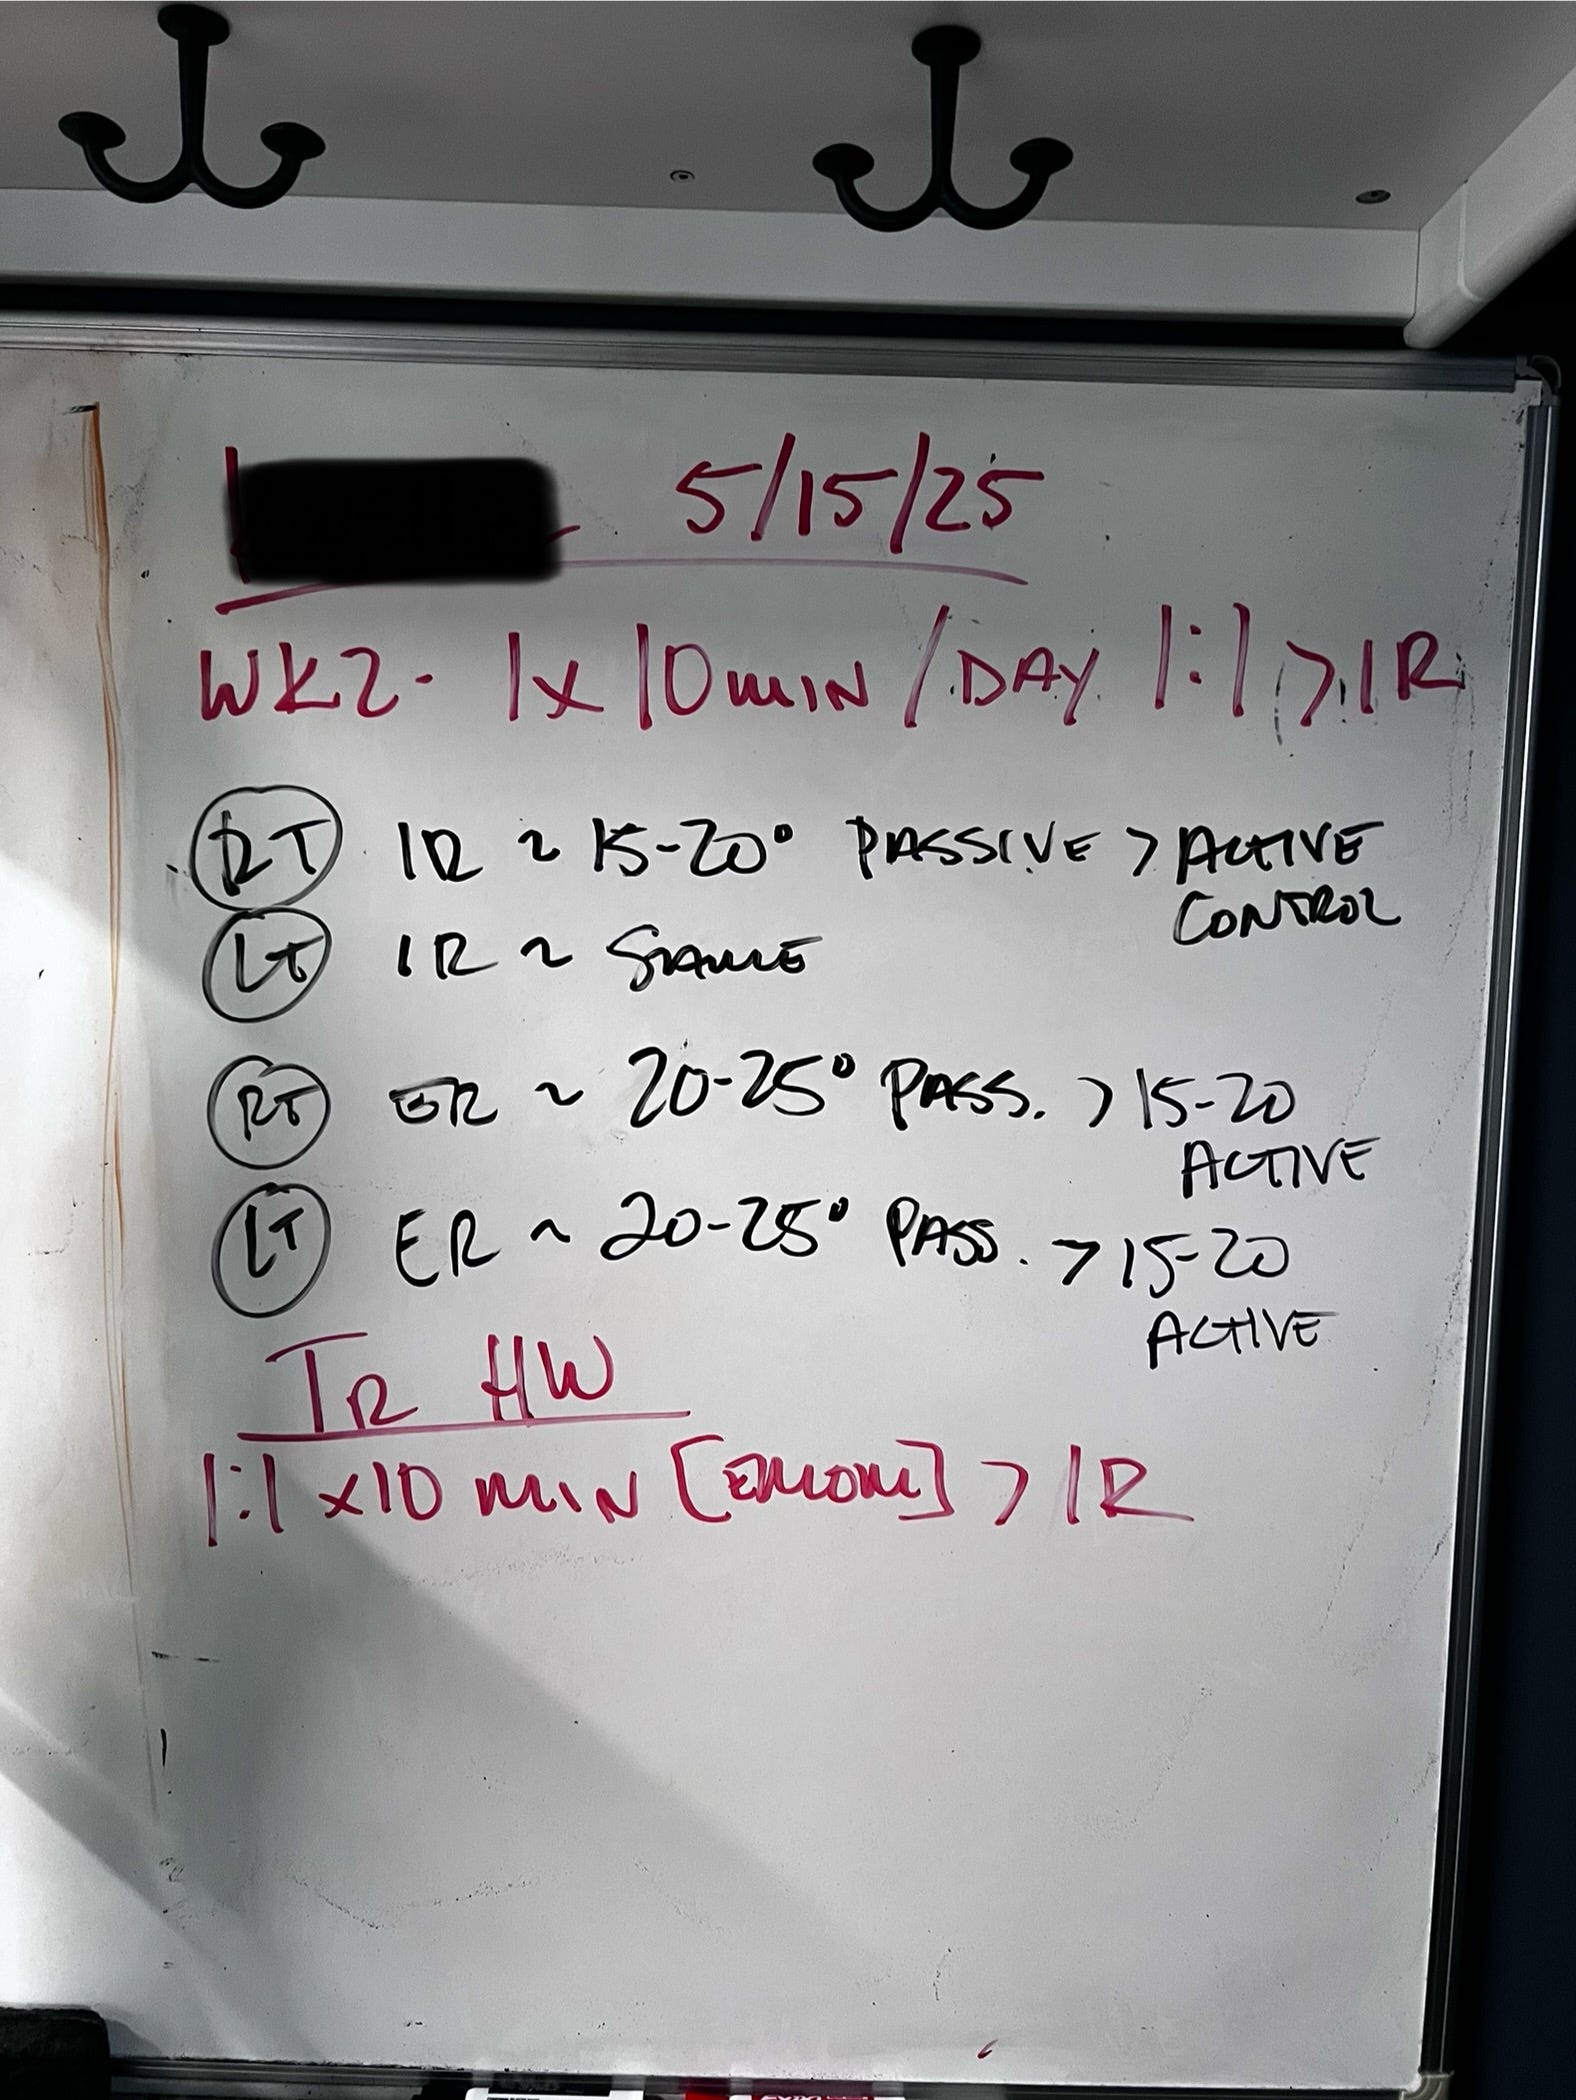 5/15/25
WK2- 1x10min/DAY 1:1 > IR
RT IR ~ 15-20° PASSIVE > ACTIVE
CONTROL
LT IR ~ SAME
RT ER ~ 20-25° PASS. > 15-20
ACTIVE
LT ER ~ 20-25° PASS. > 15-20
ACTIVE
TR HW
1:1 x10 min [EMOM] > IR